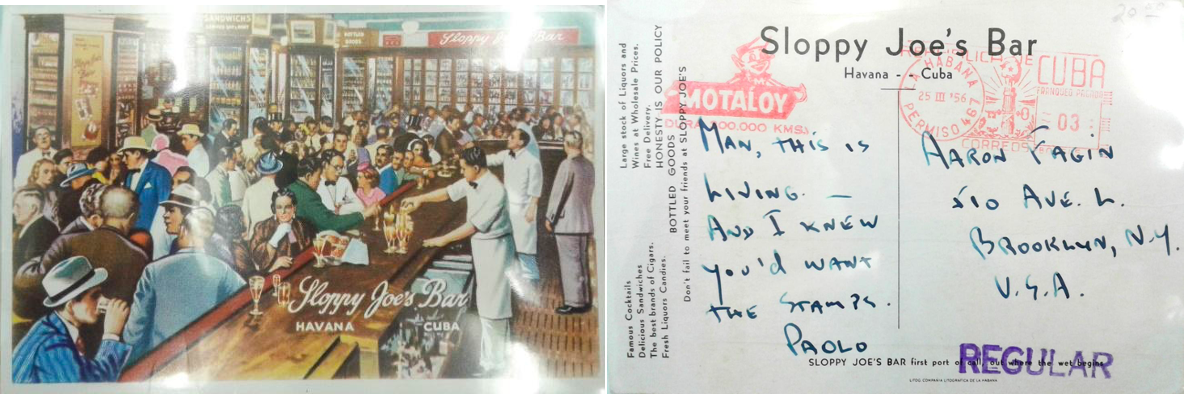 SANDWICHS
BOTTLED
GOODS
Sloppy Joe's Bar
Sloppy Joe's Bar
HAVANA CUBA
20
Sloppy Joe's Bar
Havana - - Cuba
Large stock of Liquors and
Wines at Wholesale Prices.
Free Delivery.
HONESTY IS OUR POLICY
BOTTLED GOODS
Don't fail to meet your friends at SLOPPY JOE'S
Famous Cocktails
Delicious Sandwiches
The best brands of Cigars.
Fresh Liquors Candies.
MOTALOY
DURA 100.000 KMS.
HABANA
25 III '56
PERMISO 467
CUBA
FRANQUEO PAGADO
03
CORREOS
MAN, THIS IS
LIVING. —
AND I KNEW
YOU'D WANT
THE STAMPS.
PAOLO
AARON FAGIN
510 AVE. L.
BROOKLYN, N.Y.
U.S.A.
SLOPPY JOE'S BAR first port of call, out where the wet begins
REGULAR
LITOG. COMPAÑIA LITOGRAFICA DE LA HABANA